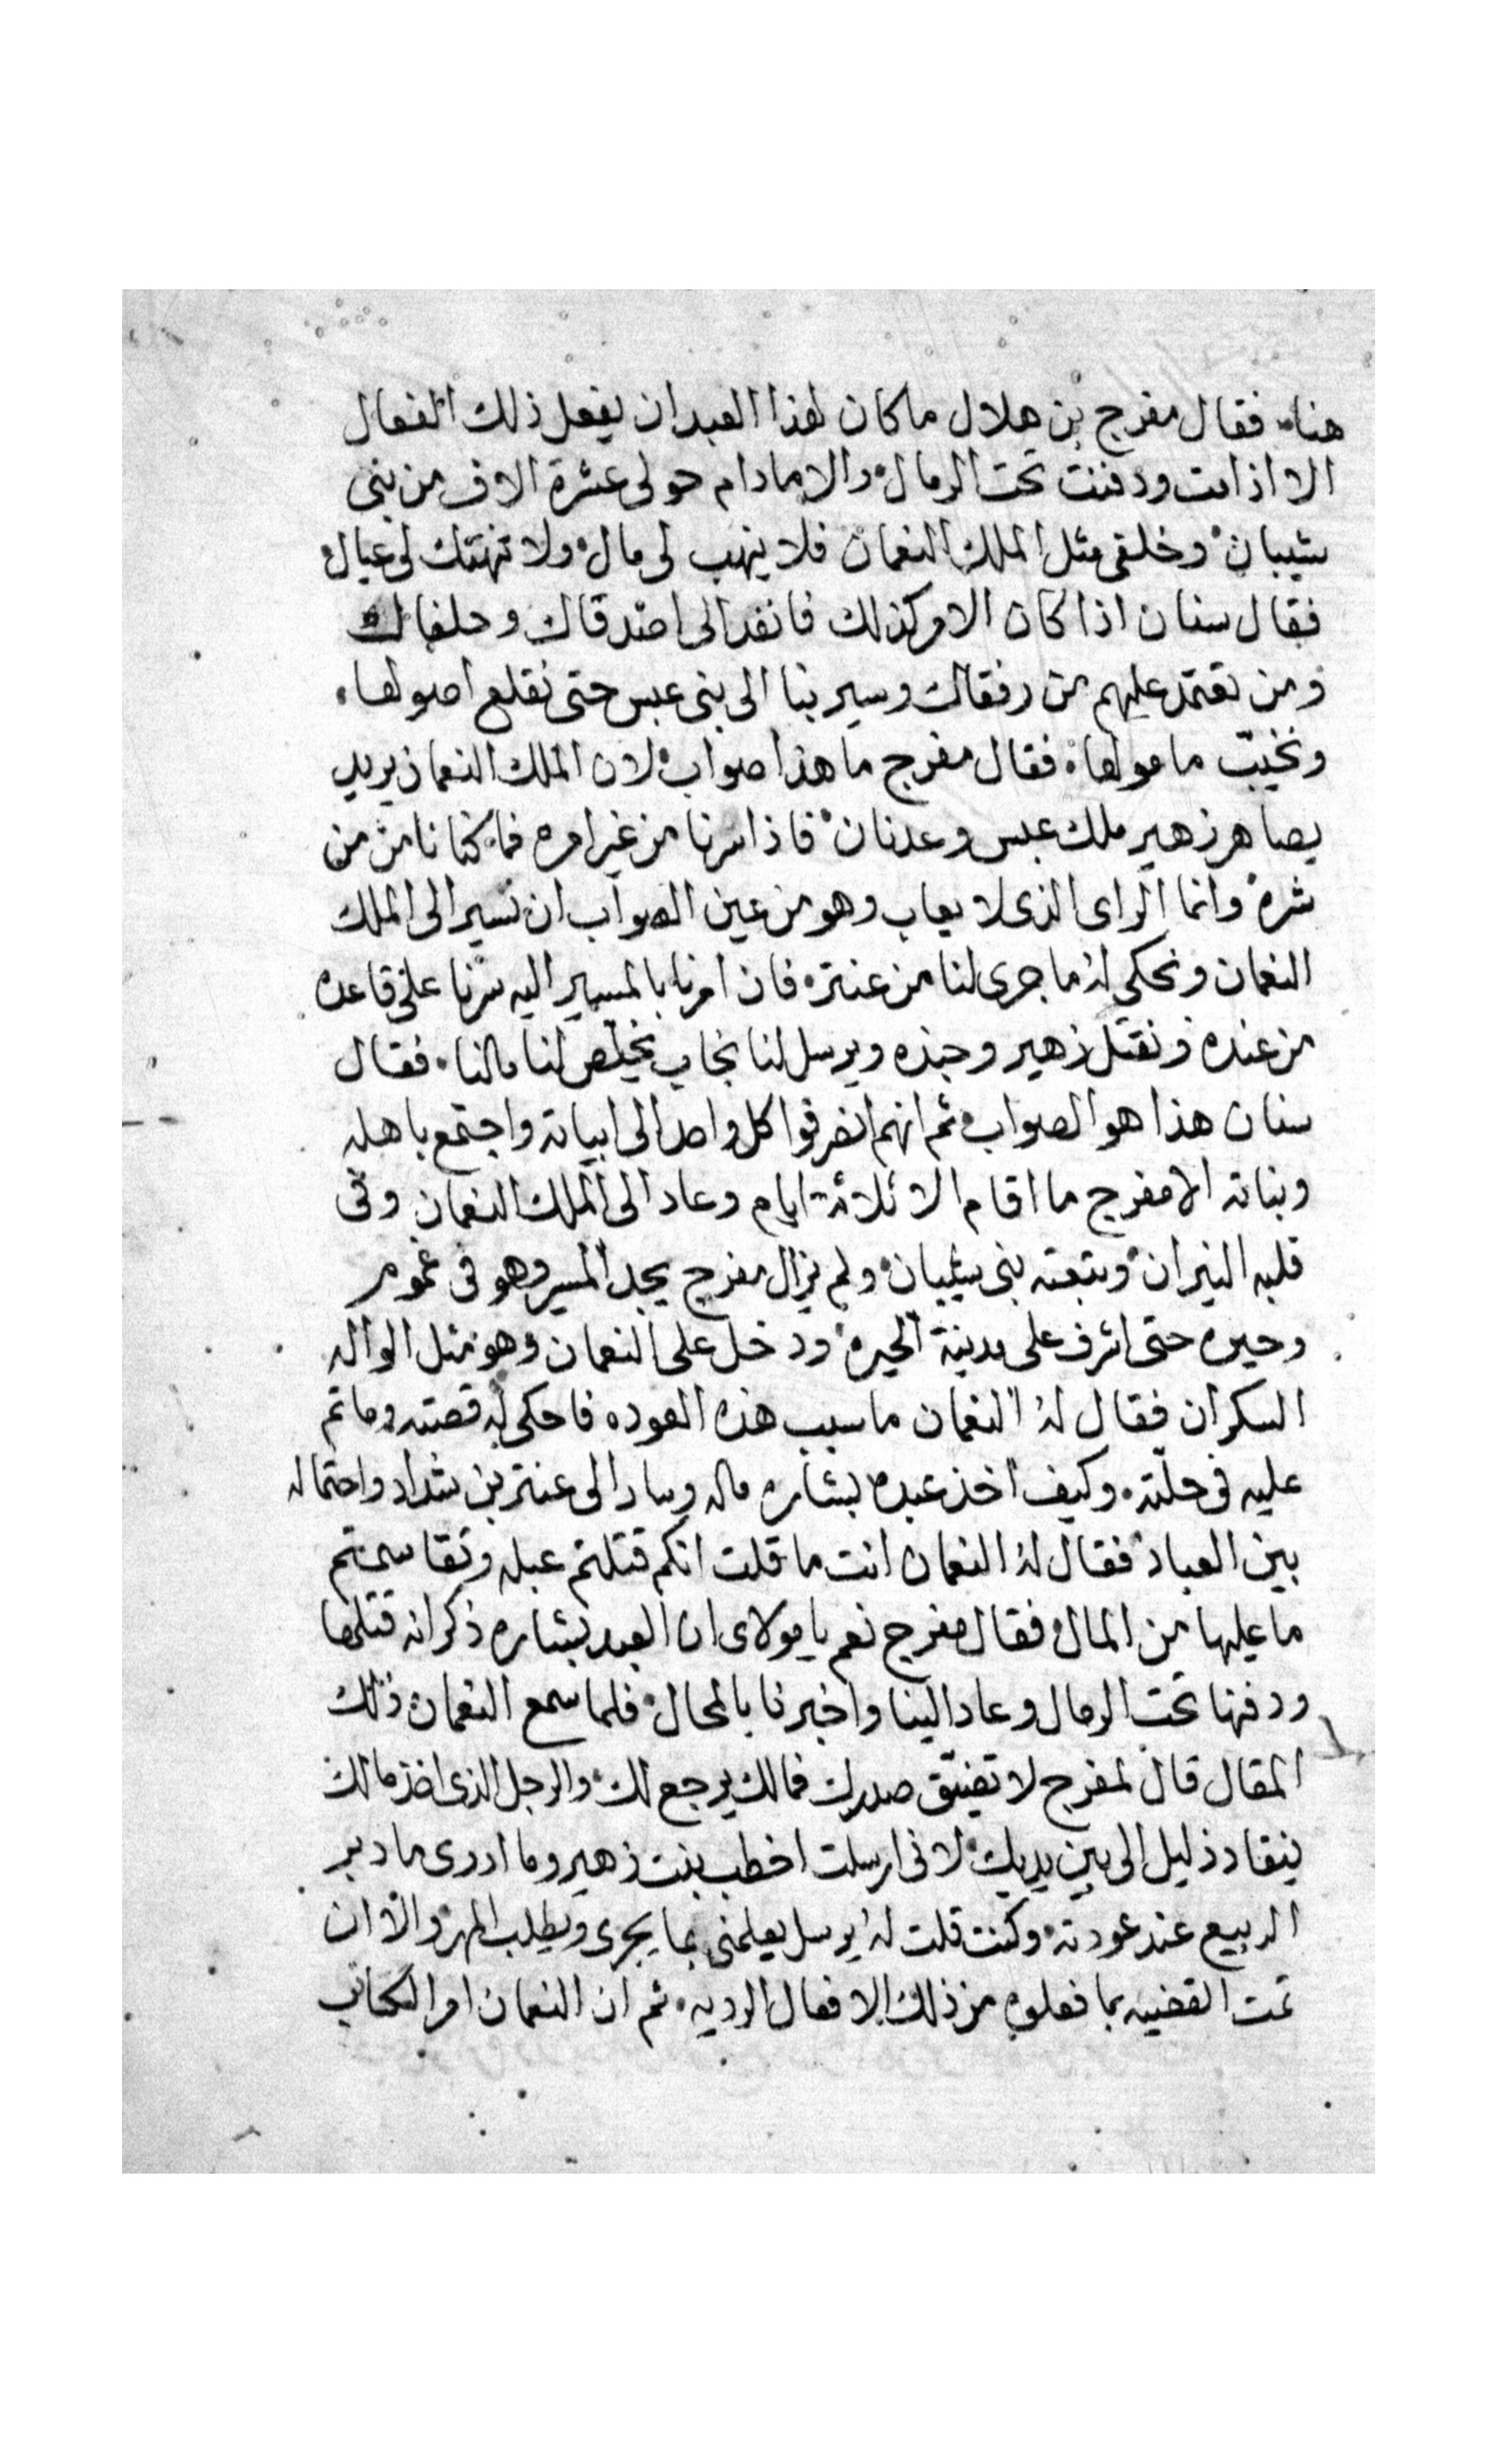 هناه فقال مفرج بن هلال ما كان لهذا العبد ان يفعل ذلك الفعال
الا اذا مت ودفنت تحت الرمال والا ما دام حولى عشرة الاف من بنى
شيبان وخلفى مثل الملك النعمان فلا ينهب لى مال ولا تنهتك لى عيال
فقال سنان اذا كان الامر كذلك فانفد الى اصدقاك وحلفاك
ومن تعتمد عليهم من رفقاك وسير بنا الى بنى عبس حتى نقلع اصولها
ونخيب مامولها فقال مفرج ما هذا صواب لان الملك النعمان يريد
يصاهر زهير ملك عبس وعدنان فاذا سرنا من غير امره فما كنا نامن من
شره وانما الراى الذى لا يعاب وهو من عين الصواب ان نسير الى الملك
النعمان ونحكى له ما جرى لنا من عنتره فان امرنا بالمسير اليه سرنا على قاعده
من عنده ونقتل زهير وجنده ويرسل لنا نجاب يخلص لنا مالنا فقال
سنان هذا هو الصواب ثم انهم انصرفوا كل واحد الى ابياته واجتمع باهله
وبناته الا مفرج ما اقام الا ثلاثة ايام وعاد الى الملك النعمان وفى
قلبه النيران وتبعته بنى شيبان ولم يزال مفرج يجد المسير وهو فى غموم
وحيره حتى اشرف على مدينة الحيره ودخل على النعمان وهو مثل الواله
السكران فقال له النعمان ما سبب هذه العوده فاحكى له قصته وما تم
عليه فى حلته وكيف اخذ عبده بشاره ماله وسار الى عنتر بن شداد واحتماله
بين العباد فقال له النعمان انت ما قلت انكم قتلتم عبله وتقاسمتم
ما عليها من المال فقال مفرج نعم يا مولاى ان العبد بشاره ذكر انه قتلها
ودفنها تحت الرمال وعاد الينا واخبرنا بالمحال فلما سمع النعمان ذلك
المقال قال لمفرج لا تضيق صدرك فمالك يرجع لك والرجل الذى اخذ مالك
ينقاد ذليل الى بين يديك لانى ارسلت اخطب بنت زهير وما ادرى ما دبر
الربيع عند عودته وكنت قلت له يرسل يعلمنى بما يجرى ويطلب المهر والا ان
تمت القضيه بما فعلوه من ذلك الافعال الرديه ثم ان النعمان امر الكاتب